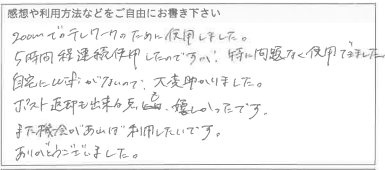 感想や利用方法などをご自由にお書き下さい
zoomでのテレワークのために使用しました。
5時間程連続使用したのですが、特に問題なく使用できました。
自宅にWifiがないので、大変助かりました。
ポスト返却も出来る点も、嬉しかったです。
また機会があれば利用したいです。
ありがとうございました。